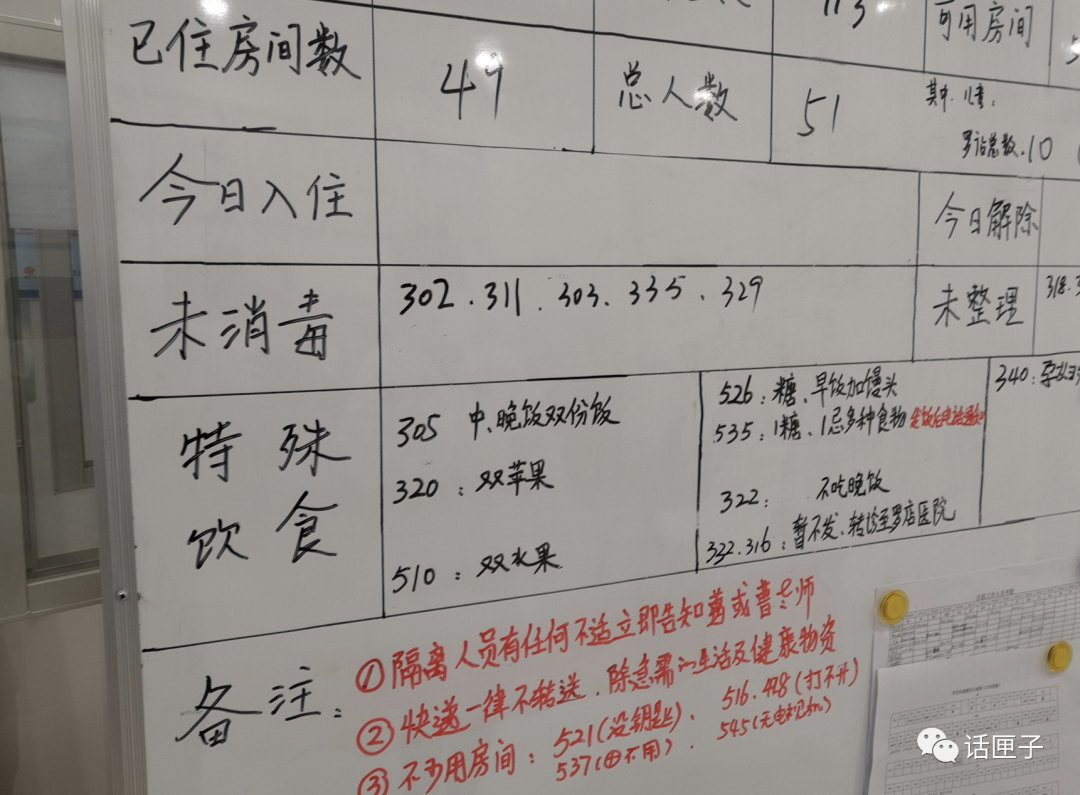 已住房间数 49 总人数 51 其中.儿童:
可用房间
罗店总数.10
今日入住 今日解除
未消毒 302.311.303.335.329 未整理 318.
特殊饮食
305 中.晚饭双份饭
320：双苹果
510：双水果
526：糖、早饭加馒头
535：1糖、1忌多种食物
322： 不吃晚饭
332.316：暂不发、转诊至罗店医院
340：
备注：
①隔离人员有任何不适立即告知 或曹老师
②快递一律不转送.除急需的生活及健康物资
③不可用房间：521(没钥匙).516.428(打不开)
537( 不用).545(无电视机)
话匣子